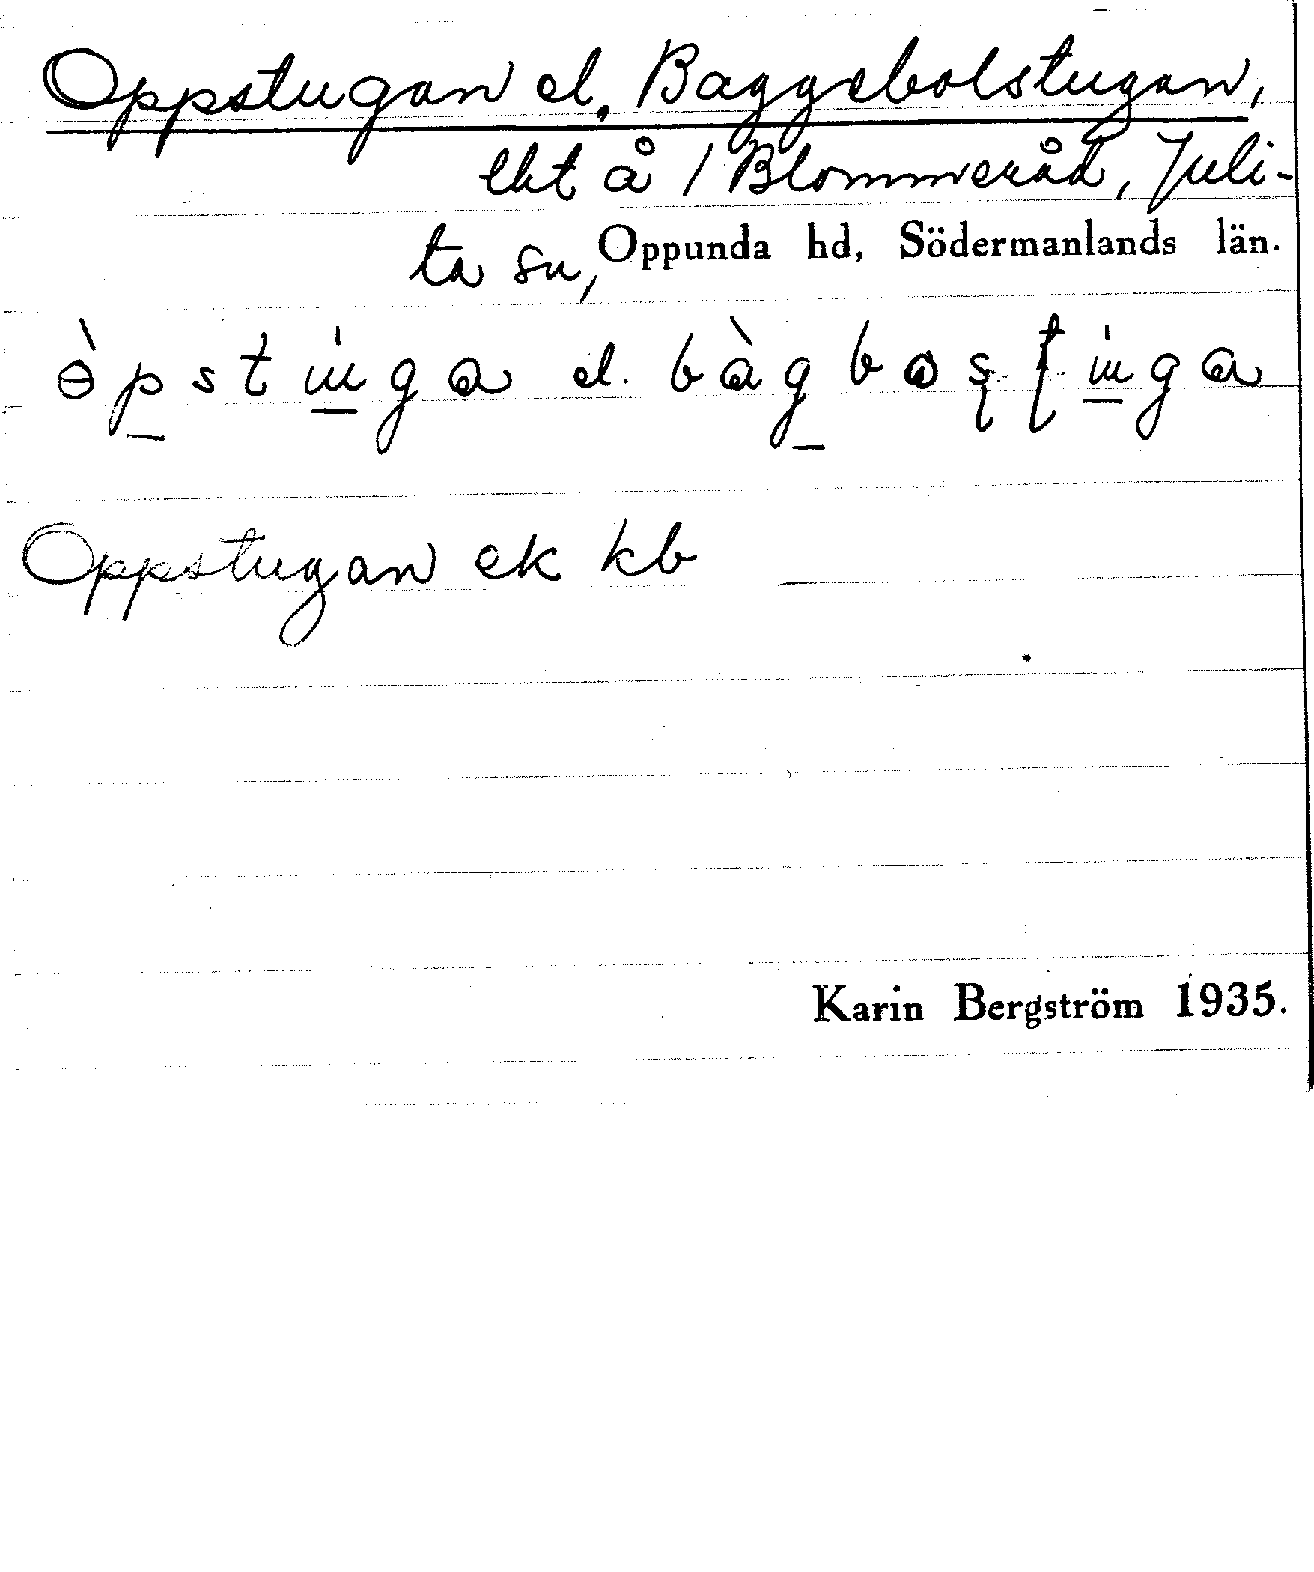 Oppstugan el. Baggebolstugan,
lht å 1 Blommeråd, Juli-
ta sn, Oppunda hd, Södermanlands län.
el.
Oppstugan ek kb
Karin Bergström 1935.